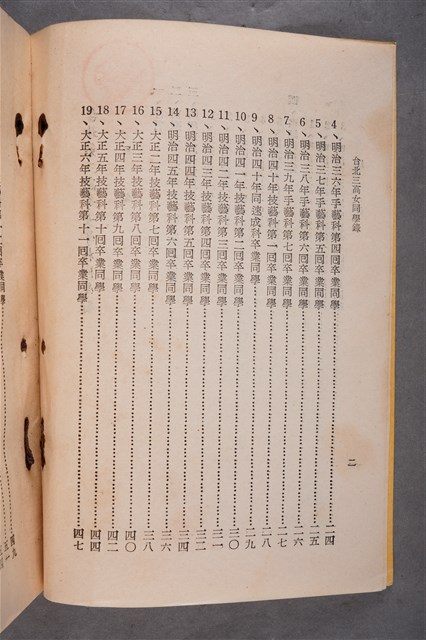 台北三高女同學錄
4、明治三六年手藝科第四回卒業同學……二四
5、明治三七年手藝科第五回卒業同學……二五
6、明治三八年手藝科第六回卒業同學……二六
7、明治三九年手藝科第七回卒業同學……二七
8、明治四十年技藝科第一回卒業同學……二八
9、明治四十年同速成科卒業同學……二九
10、明治四一年技藝科第二回卒業同學……三〇
11、明治四二年技藝科第三回卒業同學……三一
12、明治四三年技藝科第四回卒業同學……三二
13、明治四四年技藝科第五回卒業同學……三四
14、明治四五年技藝科第六回卒業同學……三六
15、大正二年技藝科第七回卒業同學……三八
16、大正三年技藝科第八回卒業同學……四〇
17、大正四年技藝科第九回卒業同學……四二
18、大正五年技藝科第十回卒業同學……四四
19、大正六年技藝科第十一回卒業同學……四七
二